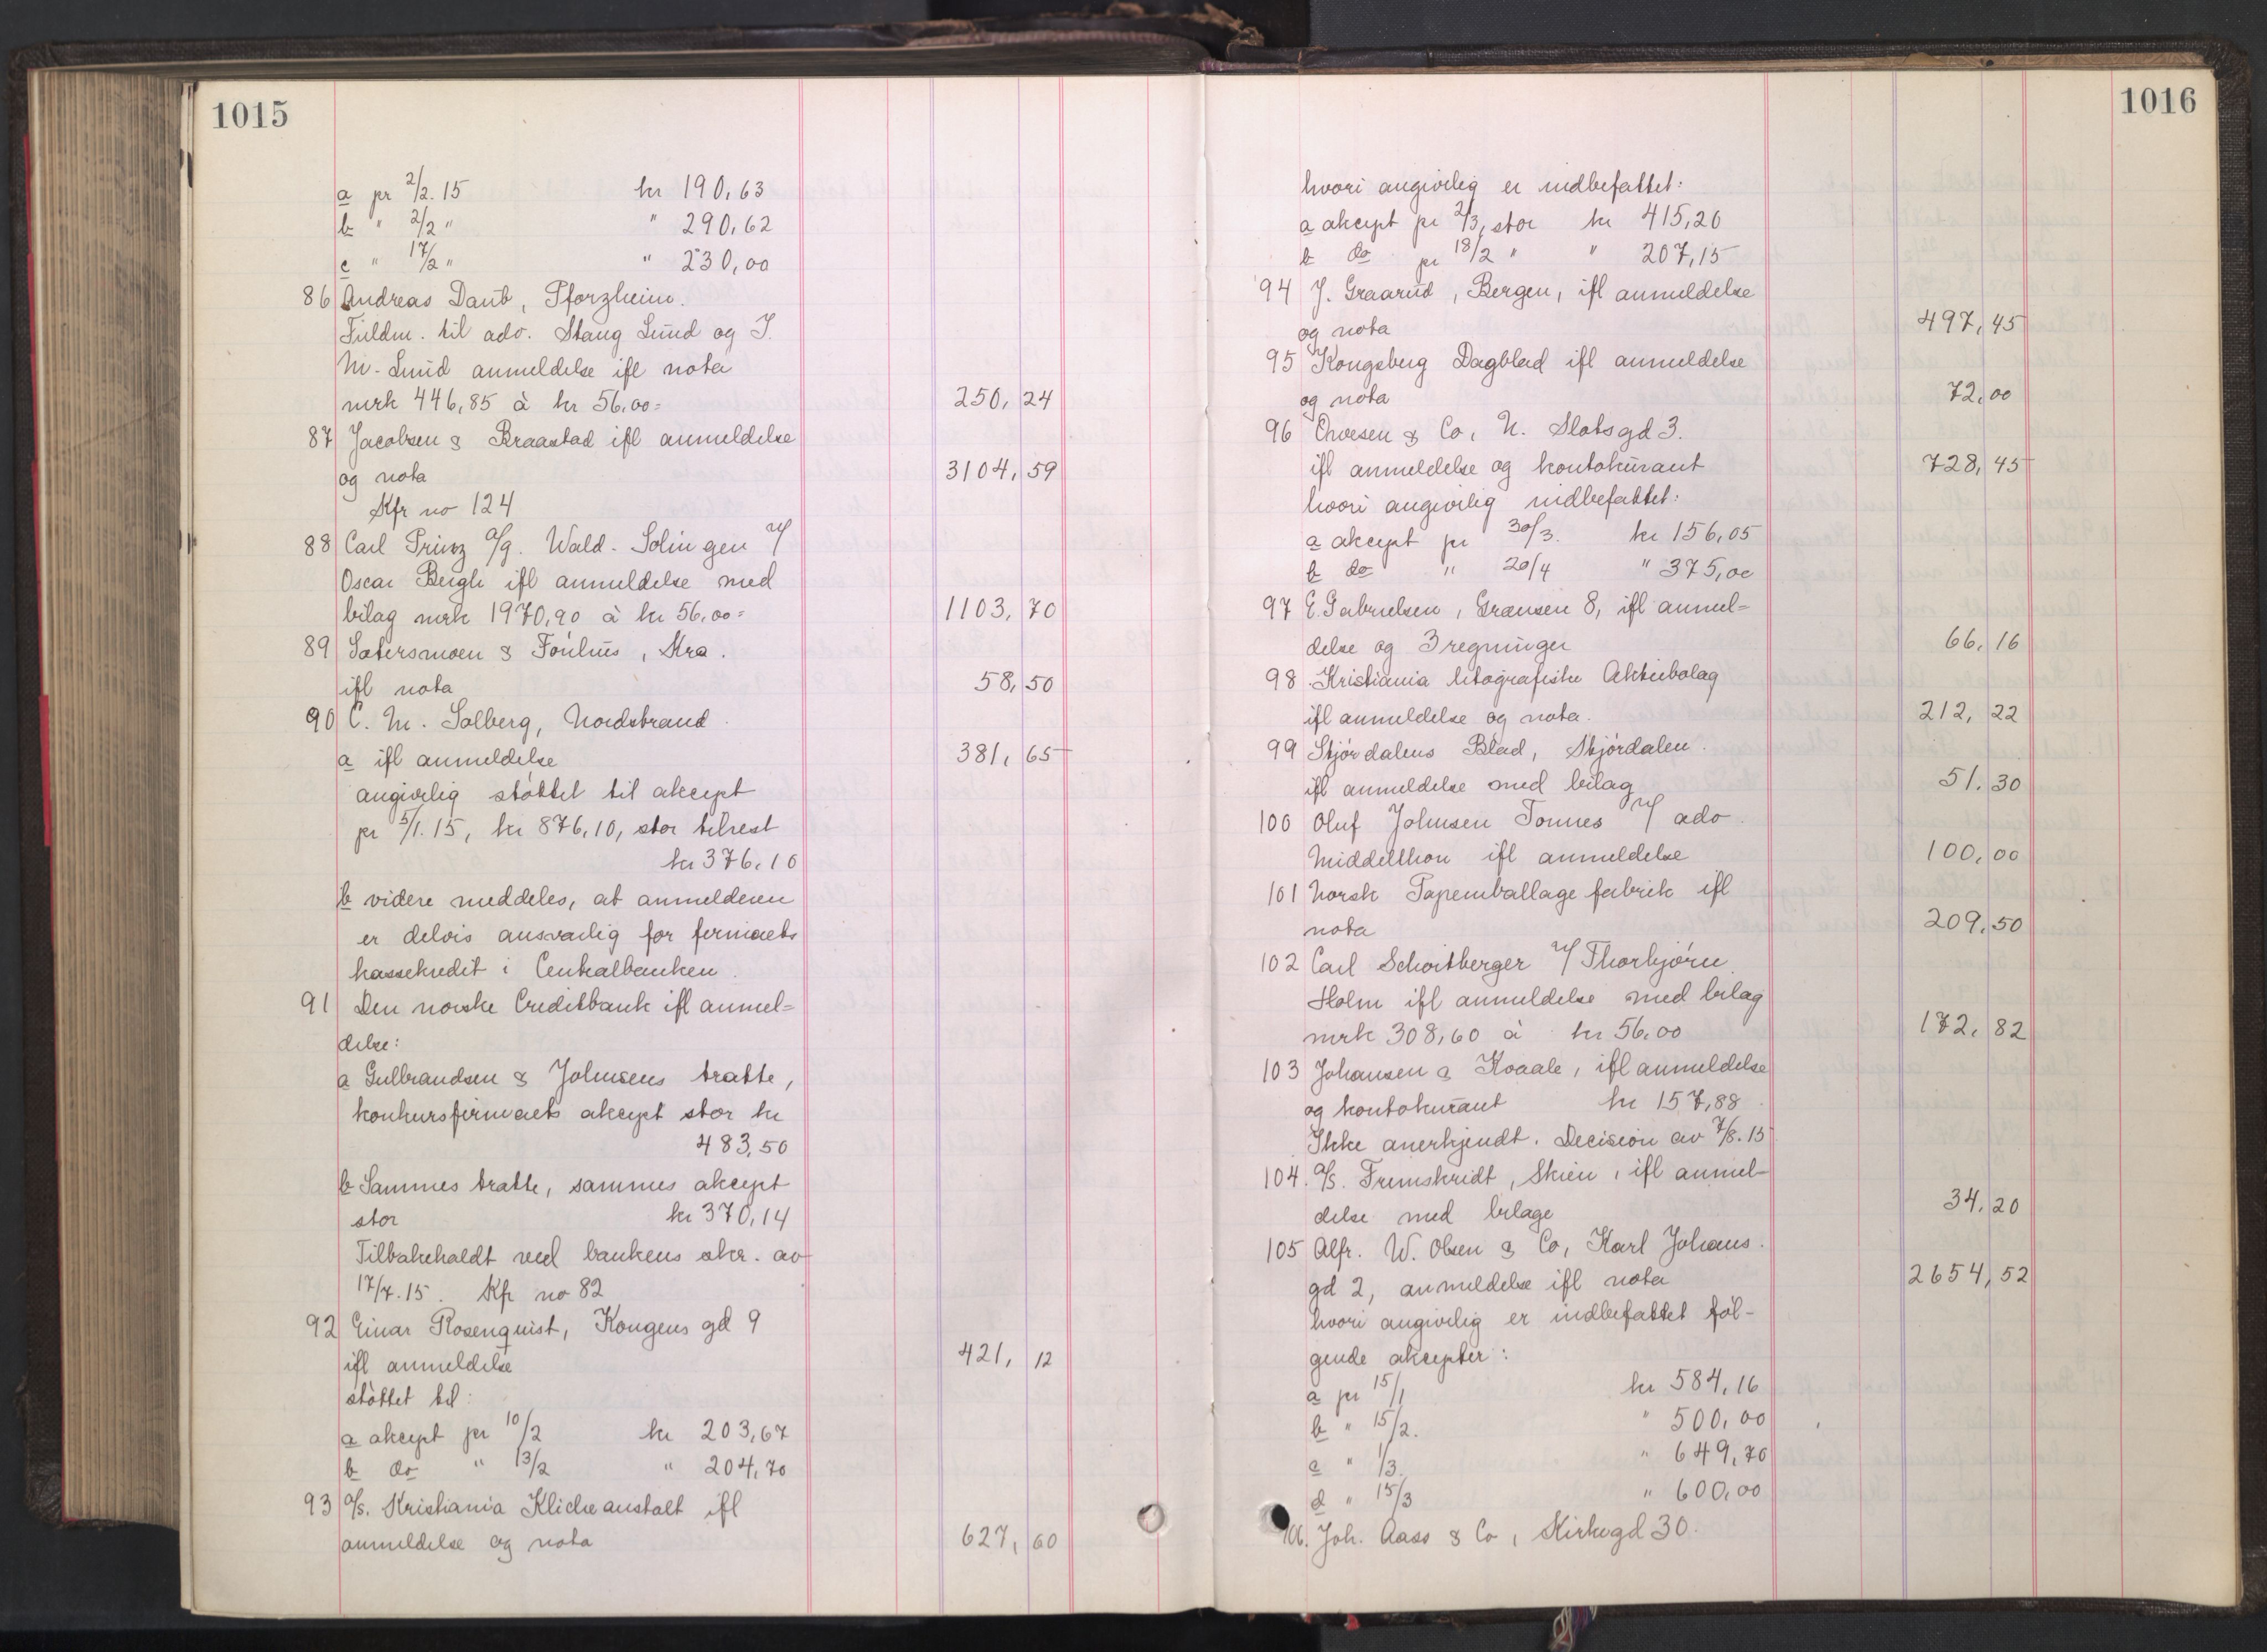 1015
a pr 2/2. 15 kr 190,63
b " 2/2 " " 290,62
c " 17/2 " " 230,00
86 Andreas Daub, Pforzheim.
Fuldm. til adv. Stang Lund og J.
M. Lund anmeldelse ifl nota
mrk 446,85 à kr 56.00= 250,24
87 Jacobsen & Braastad ifl anmeldelse
og nota 3104,59
Kfr no 124
88 Carl Prinz a/g. Wald-Solingen v/
Oscar Bergh ifl anmeldelse med
bilag mrk 1970,90 à kr 56,00= 1103,70
89 Sætersmoen & Fónhus, Kra.
ifl nota 58,50
90 C. M. Solberg, Nordstrand.
a ifl anmeldelse 381,65
angivelig støttet til akcept
pr 5/1. 15, kr 876,10, stor tilrest
kr 376.10
b videre meddeles, at anmelderen
er delvis ansvarlig for firmaets
kassekredit i Centralbanken.
91 Den norske Creditbank ifl anmel=
delse:
a Gulbrandsen & Johnsens tratte,
konkursfirmaets akcept stor kr
483,50
b Sammes tratte, sammes akcept
stor kr 370,14
Tilbakeholdt ved bankens skr. av
17/7.15. Kfr no 82
92 Einar Rosenquist, Kongens gd 9
ifl anmeldelse 421,12
støttet til:
a akcept pr 10/2 kr 203,67
b do " 13/2 " 204,70
93 a/s. Kristiania Klicheanstalt ifl
anmeldelse og nota 627,60
1016
hvori angivelig er indbefattet:
a akcept pr 2/3, stor kr 415,20
b do pr 18/2 " " 207,15
94 J. Graarud, Bergen, ifl anmeldelse
og nota 497,45
95 Kongsberg Dagblad ifl anmeldelse
og nota 72,00
96 & Co, N. Slotsgd 3.
ifl anmeldelse og kontokurant 728,45
hvori angivelig indbefattet:
a akcept pr 30/3. kr 156,05
b do " 20/4 " 375,00
97 E. Gabrielsen, Grænsen 8, ifl anmel=
delse og 3 regninger 66,16
98 Kristiania litografiske Aktiebolag
ifl anmeldelse og nota. 212,22
99 Stjórdalens Blad, Stjórdalen.
ifl anmeldelse med bilag 51.30
100 Oluf Johnsen Tonnes v/ adv.
Middelthon ifl anmeldelse 100,00
101 Norsk Papemballage fabrik ifl
nota 209,50
102 Carl v/ Thorbjórn
Holm ifl anmeldelse med bilag
mrk 308,60 à kr 56,00 172,82
103 Johansen & Kvaale, ifl anmeldelse
og kontokurant kr 157,88
Ikke anerkjendt. Decision av 7/8.15
104. a/s. Fremskridt, Skien, ifl anmel-
delse med bilage 34,20
105 Alfr. W. Olsen & Co, Karl Johans.
gd 2, anmeldelse ifl nota 2654,52
hvori angivelig er indbefattet føl-
gende akcepter:
a pr 15/1 kr 584,16
b " 15/2. " 500,00
c " 1/3. " 649,70
d " 15/3 " 600,00
106. Joh. Aass & Co, Kirkegd 30.